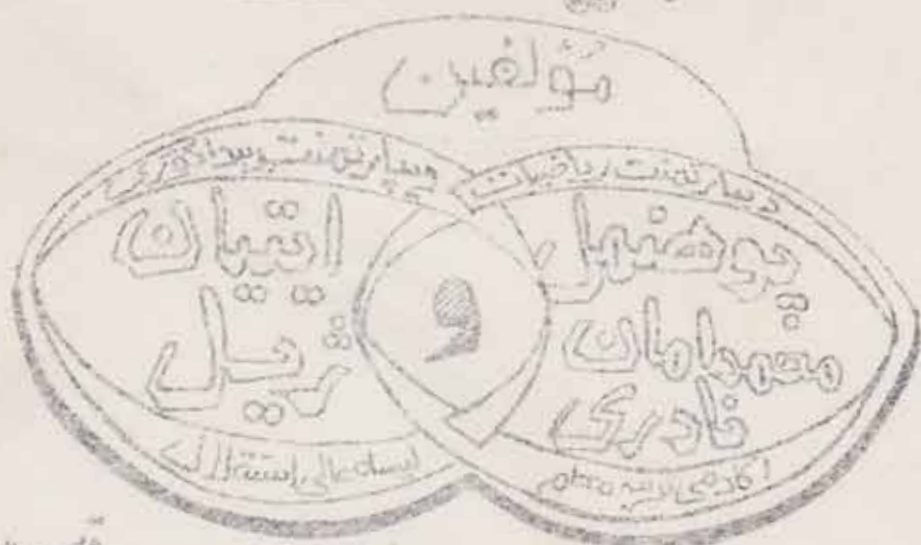 مؤلفین
دیپارتمنت ریاضیات
پوهنمل
محمد امان
نادری
اکادمی تربیه معلم
و
دیپارتمنت پیداگوژی
اتیان
ژیل